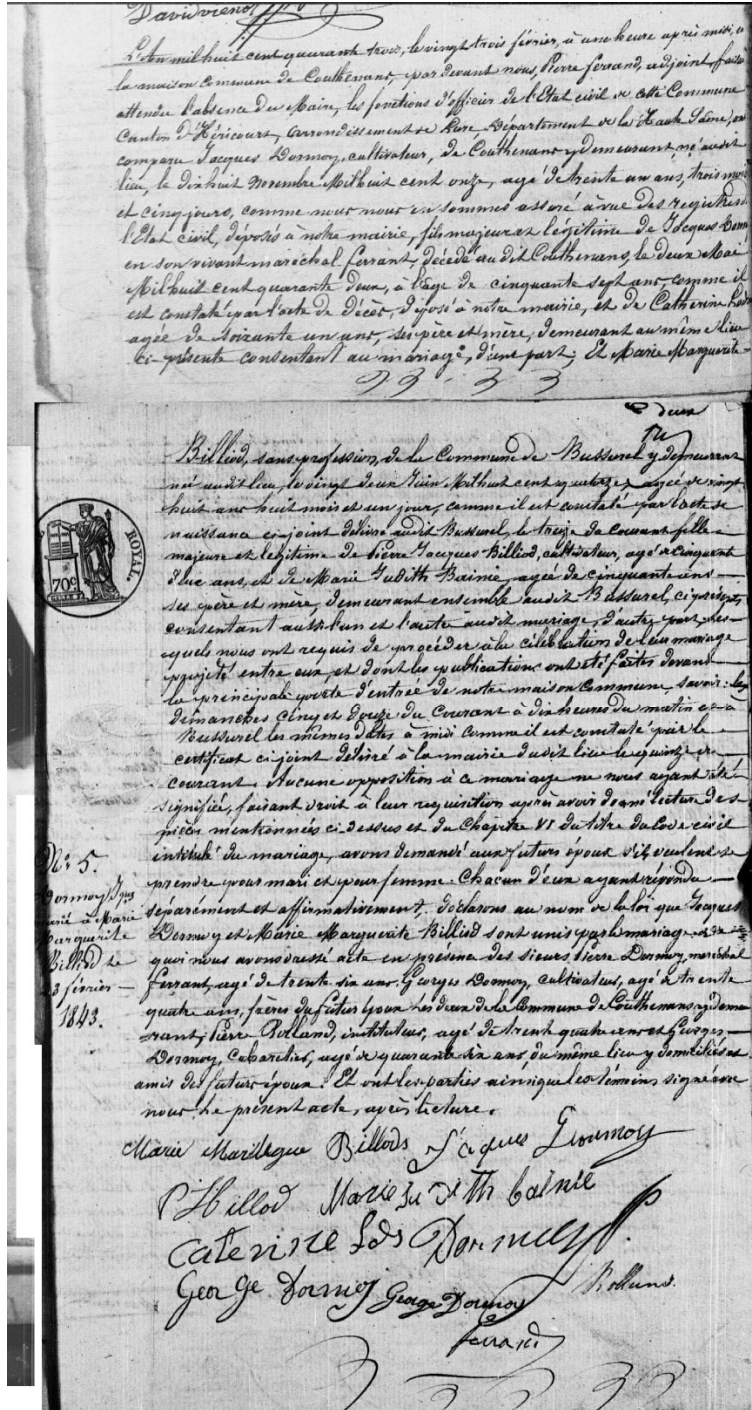 David
L'An mil huit cent quarante trois, le vingt trois février, à une heure après midi, à
la maison commune de Couthenans, par devant nous, Pierre ferrand, adjoint, faisa
attendu l'absence du Maire, les fonctions d'officier de l'Etat civil de cette Commune
Canton d'Héricourt, arrondissement de Lure Département de la Haute Saône, est
comparu Jacques Dormoy, cultivateur, de Couthenans y demeurant né audit
lieu, le dix huit Novembre Mil huit cent onze, agé de trente un ans, trois mois
et cinq jours, comme nous nous en sommes assuré à vue des registres de
l'Etat civil, déposés à notre mairie, fils majeur et légitime de Jacques Dorm
en son vivant maréchal ferrant, décédé au dit Couthenans, le deux Mai
Mil huit cent quarante deux, à l'âge de cinquante sept ans, comme il
est constaté par l'acte de décès, déposé à notre mairie, et de Catherine
agée de soixante un ans, ses père et mère, demeurant au même lieu
ci présente consentant au mariage, d'une part; Et Marie Marguerite
deux
Billiod, sans profession, de la Commune de Bussurel y demeurant
née audit lieu, le vingt deux Juin Mil huit cent quatorze, agée de vingt
huit ans huit mois et un jour, comme il est constaté par l'acte de
naissance ci-joint délivré audit Bussurel, le treize du courant fille
majeure et legitime de Pierre Jacques Billiod, cultivateur, agé de cinquante
deux ans, et de Marie Judith Bainié, agée de cinquante ans
ses père et mère, demeurant ensemble audit Bussurel, ci présents
consentant aussi l'un et l'autre audit mariage, d'autre part, les-
quels nous ont requis de procéder à la célébration de leur mariage
projeté entre eux, et dont les publications ont été faites devant
la principale porte d'entrée de notre maison Commune, savoir: les
dimanches cinq et douze du Courant à dix heures du matin et à
Bussurel les mêmes dates à midi comme il est constaté par le
certificat ci joint délivré à la mairie dudit lieu le quinze du
courant. Aucune opposition à ce mariage ne nous ayant été
signifiée, faisant droit à leur requisition après avoir donné lecture des
pièces mentionnées ci dessus et du Chapitre VI du titre du Code civil
intitulé du mariage, avons demandé aux futurs époux s'il veulent se
prendre pour mari et pour femme. Chacun d'eux ayant répondu
séparément et affirmativement, déclarons au nom de la loi que Jacques
Dormoy et Marie Marguerite Billiod sont unis par le mariage et de
quoi nous avons dressé acte en présence des sieurs Pierre Dormoy, maréchal
ferrant, agé de trente six ans, Georges Dormoy, cultivateur, agé de trente
quatre ans, frères du futur époux les deux de la Commune de Couthenans y demeu
rant, Pierre Rolland, instituteur, agé de trente quatre ans et Georges
Dormoy, Cabaretier, agé de quarante six ans du même lieu y domiciliés et
amis des futurs époux. Et ont les parties ainsi que les témoins signé avec
nous le présent acte, après lecture.
ROYAL.
70c
No 5.
Dormoy Jques
marié à Marie
Marguerite
Billiod le
23 février
1843.
Marie Billods Jaques Dourmoy
P J Billod Marie Judith bainie
Caterine Dormoy
George Dormoy George Dormoy Rolland.
ferrand